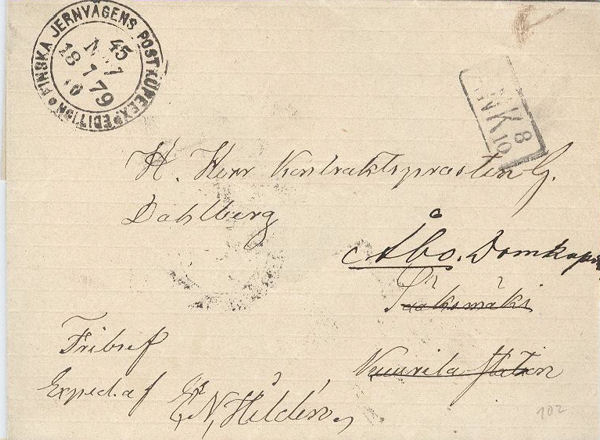 FINSKA JERNVÄGENS POSTKUPEEXPEDITION
45
18 7 79
10
NK 8
10
H. Herr Kontraktsprosten G.
Dahlberg
Åbo. Domkapi
Sääksmäki
Fribref
Exped. af E. N. Hildén
102